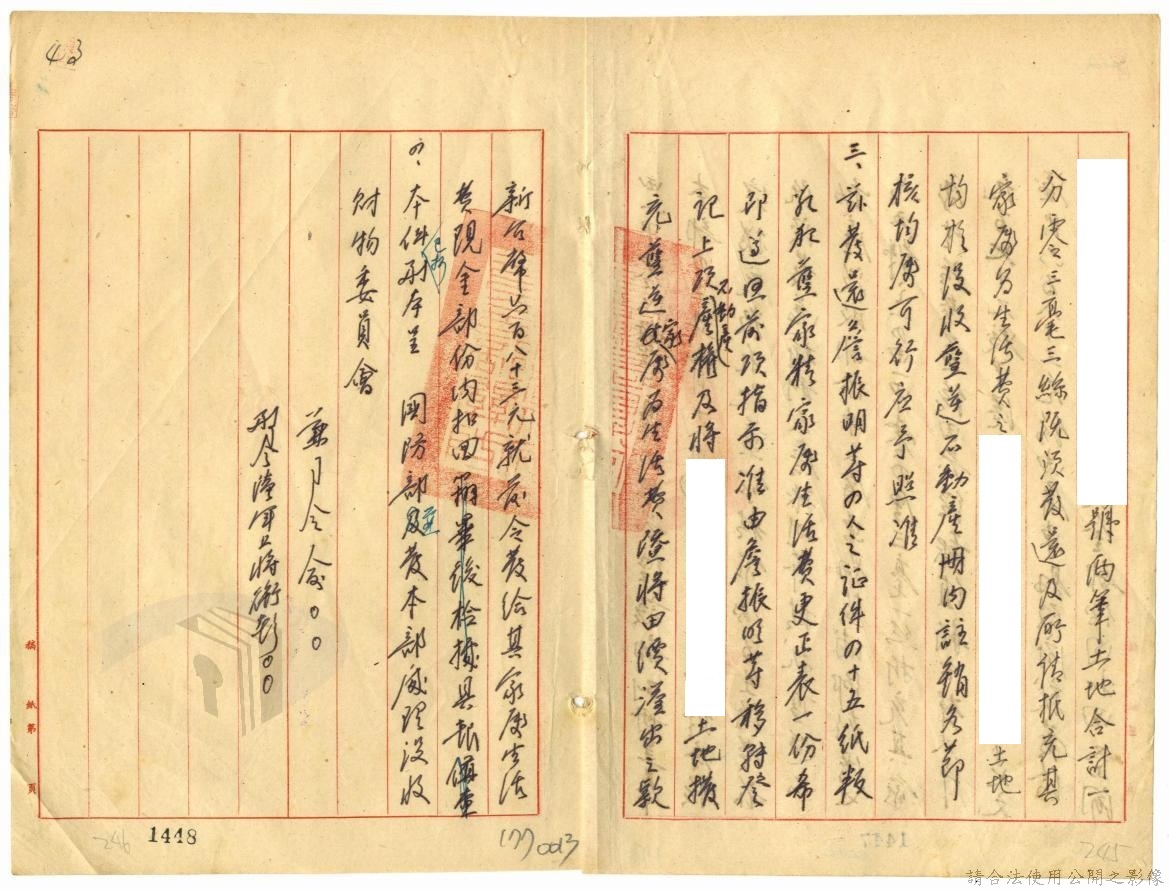 號兩筆土地合計兩
分零三毫三絲既須發還及所請抵充其
家屬為生活費之
土地又
均於沒收叛逆不動產冊內註銷各節
核均屬可行應予照准
三、茲發還詹振明等の人之証件の十五紙叛
犯犯舊家精家屬生活費更正表一份希
即遵照前項指示准由詹振明等移轉登
記上項不動產產權及將
土地撥
充舊逆家屬為生活費證將田價溢出之款
新台幣六百八十三元就發令發給其家屬生活
費現金部份內扣回辦畢後檢據具報
の、本件已抄副本呈 國防部及發本部處理沒收
財物委員會
兼司令俞○○
彭○○
稿 紙 第 頁
43
246
1448
177
0013
1447
245
請合法使用公開之影像